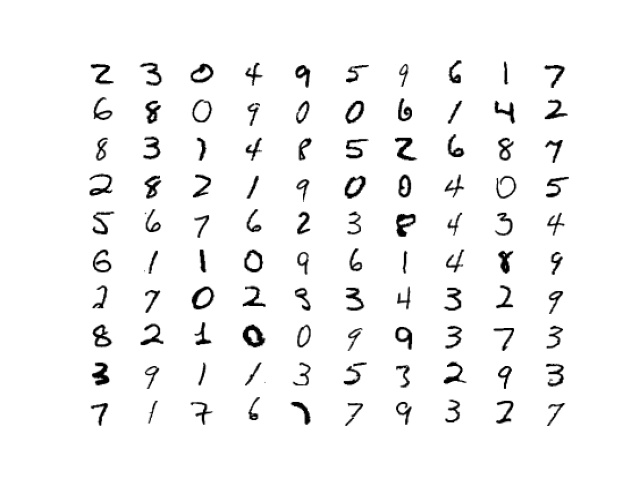 2 3 0 4 9 5 9 6 1 7
6 8 0 9 0 0 6 1 4 2
8 3 1 4 8 5 2 6 8 7
2 8 2 1 9 0 0 4 0 5
5 6 7 6 2 3 8 4 3 4
6 1 1 0 9 6 1 4 8 9
2 7 0 2 9 3 4 3 2 9
8 2 1 0 0 9 9 3 7 3
3 9 1 1 3 5 3 2 9 3
7 1 7 6 7 7 9 3 2 7